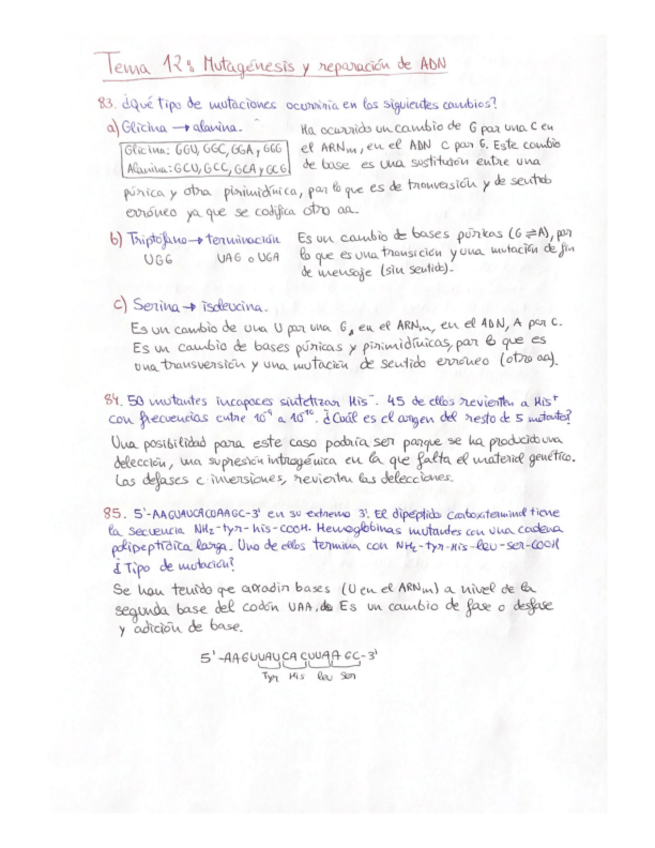 Tema 12: Mutagénesis y reparación de ADN
83. ¿Qué tipo de mutaciones ocurriría en los siguientes cambios?
a) Glicina → alanina.
Glicina: GGU, GGC, GGA y GGG
Alanina: GCU, GCC, GCA y GCG
Ha ocurrido un cambio de G por una C en
el ARNm, en el ADN C por G. Este cambio
de base es una sustitución entre una
púrica y otra pirimidínica, por lo que es de tranversión y de sentido
erróneo ya que se codifica otro aa.
b) Triptófano → terminación
UGG UAG o UGA
Es un cambio de bases púricas (G ⇌ A), por
lo que es una transición y una mutación de fin
de mensaje (sin sentido).
c) Serina → isoleucina.
Es un cambio de una U por una G, en el ARNm, en el ADN, A por C.
Es un cambio de bases púricas y pirimidínicas, por lo que es
una transversión y una mutación de sentido erróneo (otro aa).
84. 50 mutantes incapaces sintetizar His⁻. 45 de ellos revierten a His⁺
con frecuencias entre 10⁻⁴ a 10⁻¹⁰. ¿Cuál es el origen del resto de 5 mutantes?
Una posibilidad para este caso podría ser porque se ha producido una
delección, una supresión intragénica en la que falta el material genético.
Los defases e inversiones, revierten las delecciones.
85. 5'-AAGUAUCACUAAGC-3' en su extremo 3'. El dipeptido carboxiterminal tiene
la secuencia NH₂-tyr-his-COOH. Hemoglobinas mutantes con una cadena
polipeptídica larga. Uno de ellos termina con NH₂-tyr-His-leu-ser-COOH
¿Tipo de mutación?
Se han tenido que añadir bases (U en el ARNm) a nivel de la
segunda base del codón UAA. Es un cambio de fase o desfase
y adición de base.
5'-AAGUUAUCACUUAAGC-3'
Tyr His leu Ser